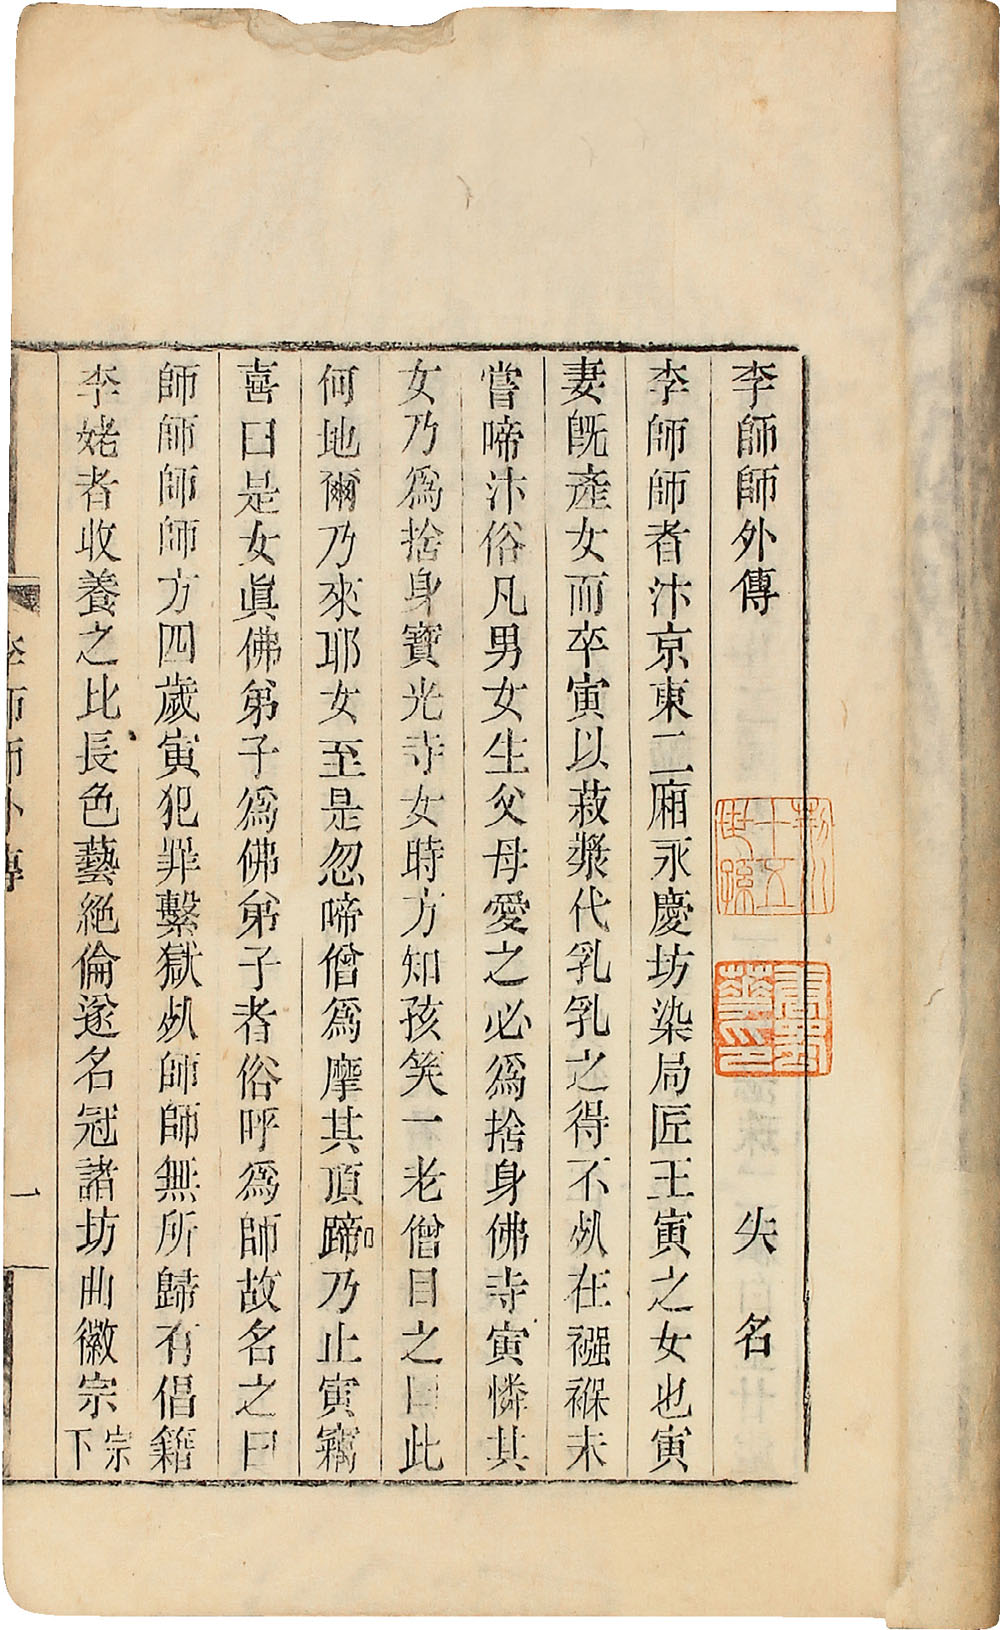 李師師外傳 失名
李師師者汴京東二廂永慶坊染局匠王寅之女也寅
妻旣產女而卒寅以菽漿代乳乳之得不死在襁褓未
嘗啼汴俗凡男女生父母愛之必爲捨身佛寺寅憐其
女乃爲捨身寶光寺女時方知孩笑一老僧目之曰此
何地爾乃來耶女至是忽啼僧爲摩其頂蹄乃止寅竊
喜曰是女眞佛弟子爲佛弟子者俗呼爲師故名之曰
師師師師方四歲寅犯罪繫獄死師師無所歸有倡籍
李姥者收養之比長色藝絕倫遂名冠諸坊曲徽宗宗下
李師師外傳 一